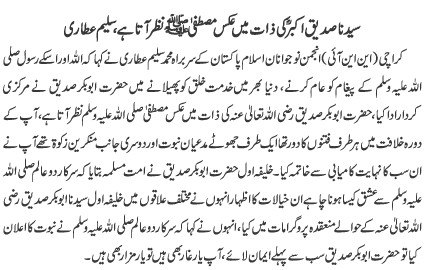 سیدنا صدیق اکبرؓ کی ذات میں عکس مصطفیٰ ﷺ نظر آتا ہے، سلیم عطاری
کراچی (این این آئی) انجمن نوجوانان اسلام پاکستان کے سربراہ محمد سلیم عطاری نے کہا کہ اللہ اور اسکے رسول صلی
اللہ علیہ وسلم کے پیغام کو عام کرنے، دنیا بھر میں خدمت خلق کو پھیلانے میں حضرت ابوبکر صدیق نے مرکزی
کردار ادا کیا، حضرت ابوبکر صدیق رضی اللہ تعالیٰ عنہ کی ذات میں عکس مصطفیٰ صلی اللہ علیہ وسلم نظر آتا ہے، آپ کے
دورہ خلافت میں ہر طرف فتنوں کا دور تھا ایک طرف جھوٹے مدعیان نبوت اور دوسری جانب منکرین زکوٰة تھے آپ نے
ان سب کا نہایت کامیابی سے خاتمہ کیا۔ خلیفہ اول حضرت ابوبکر صدیق نے امت مسلمہ بتایا کہ سرکار دو عالم صلی اللہ
علیہ وسلم سے عشق کیسا ہونا چاہے ان خیالات کا اظہار انہوں نے مختلف علاقوں میں خلیفہ اول سیدنا ابوبکر صدیق رضی
اللہ تعالیٰ عنہ کے حوالے منعقدہ پروگرامات میں کیا، انہوں نے کہا کہ سرکار دو عالم صلی اللہ علیہ وسلم نے نبوت کا اعلان
کیا تو حضرت ابوبکر صدیق سب سے پہلے ایمان لائے، آپ یار غار بھی ہیں تو یار مزار بھی ہیں۔